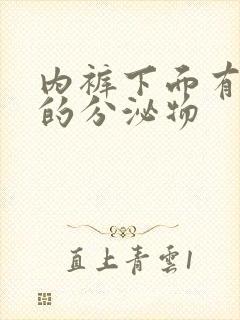 内裤下面有
的分泌物
直上青雲1